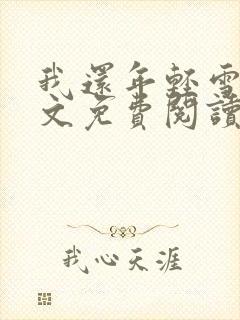 我還年輕雪
文免費閱讀
我心天涯